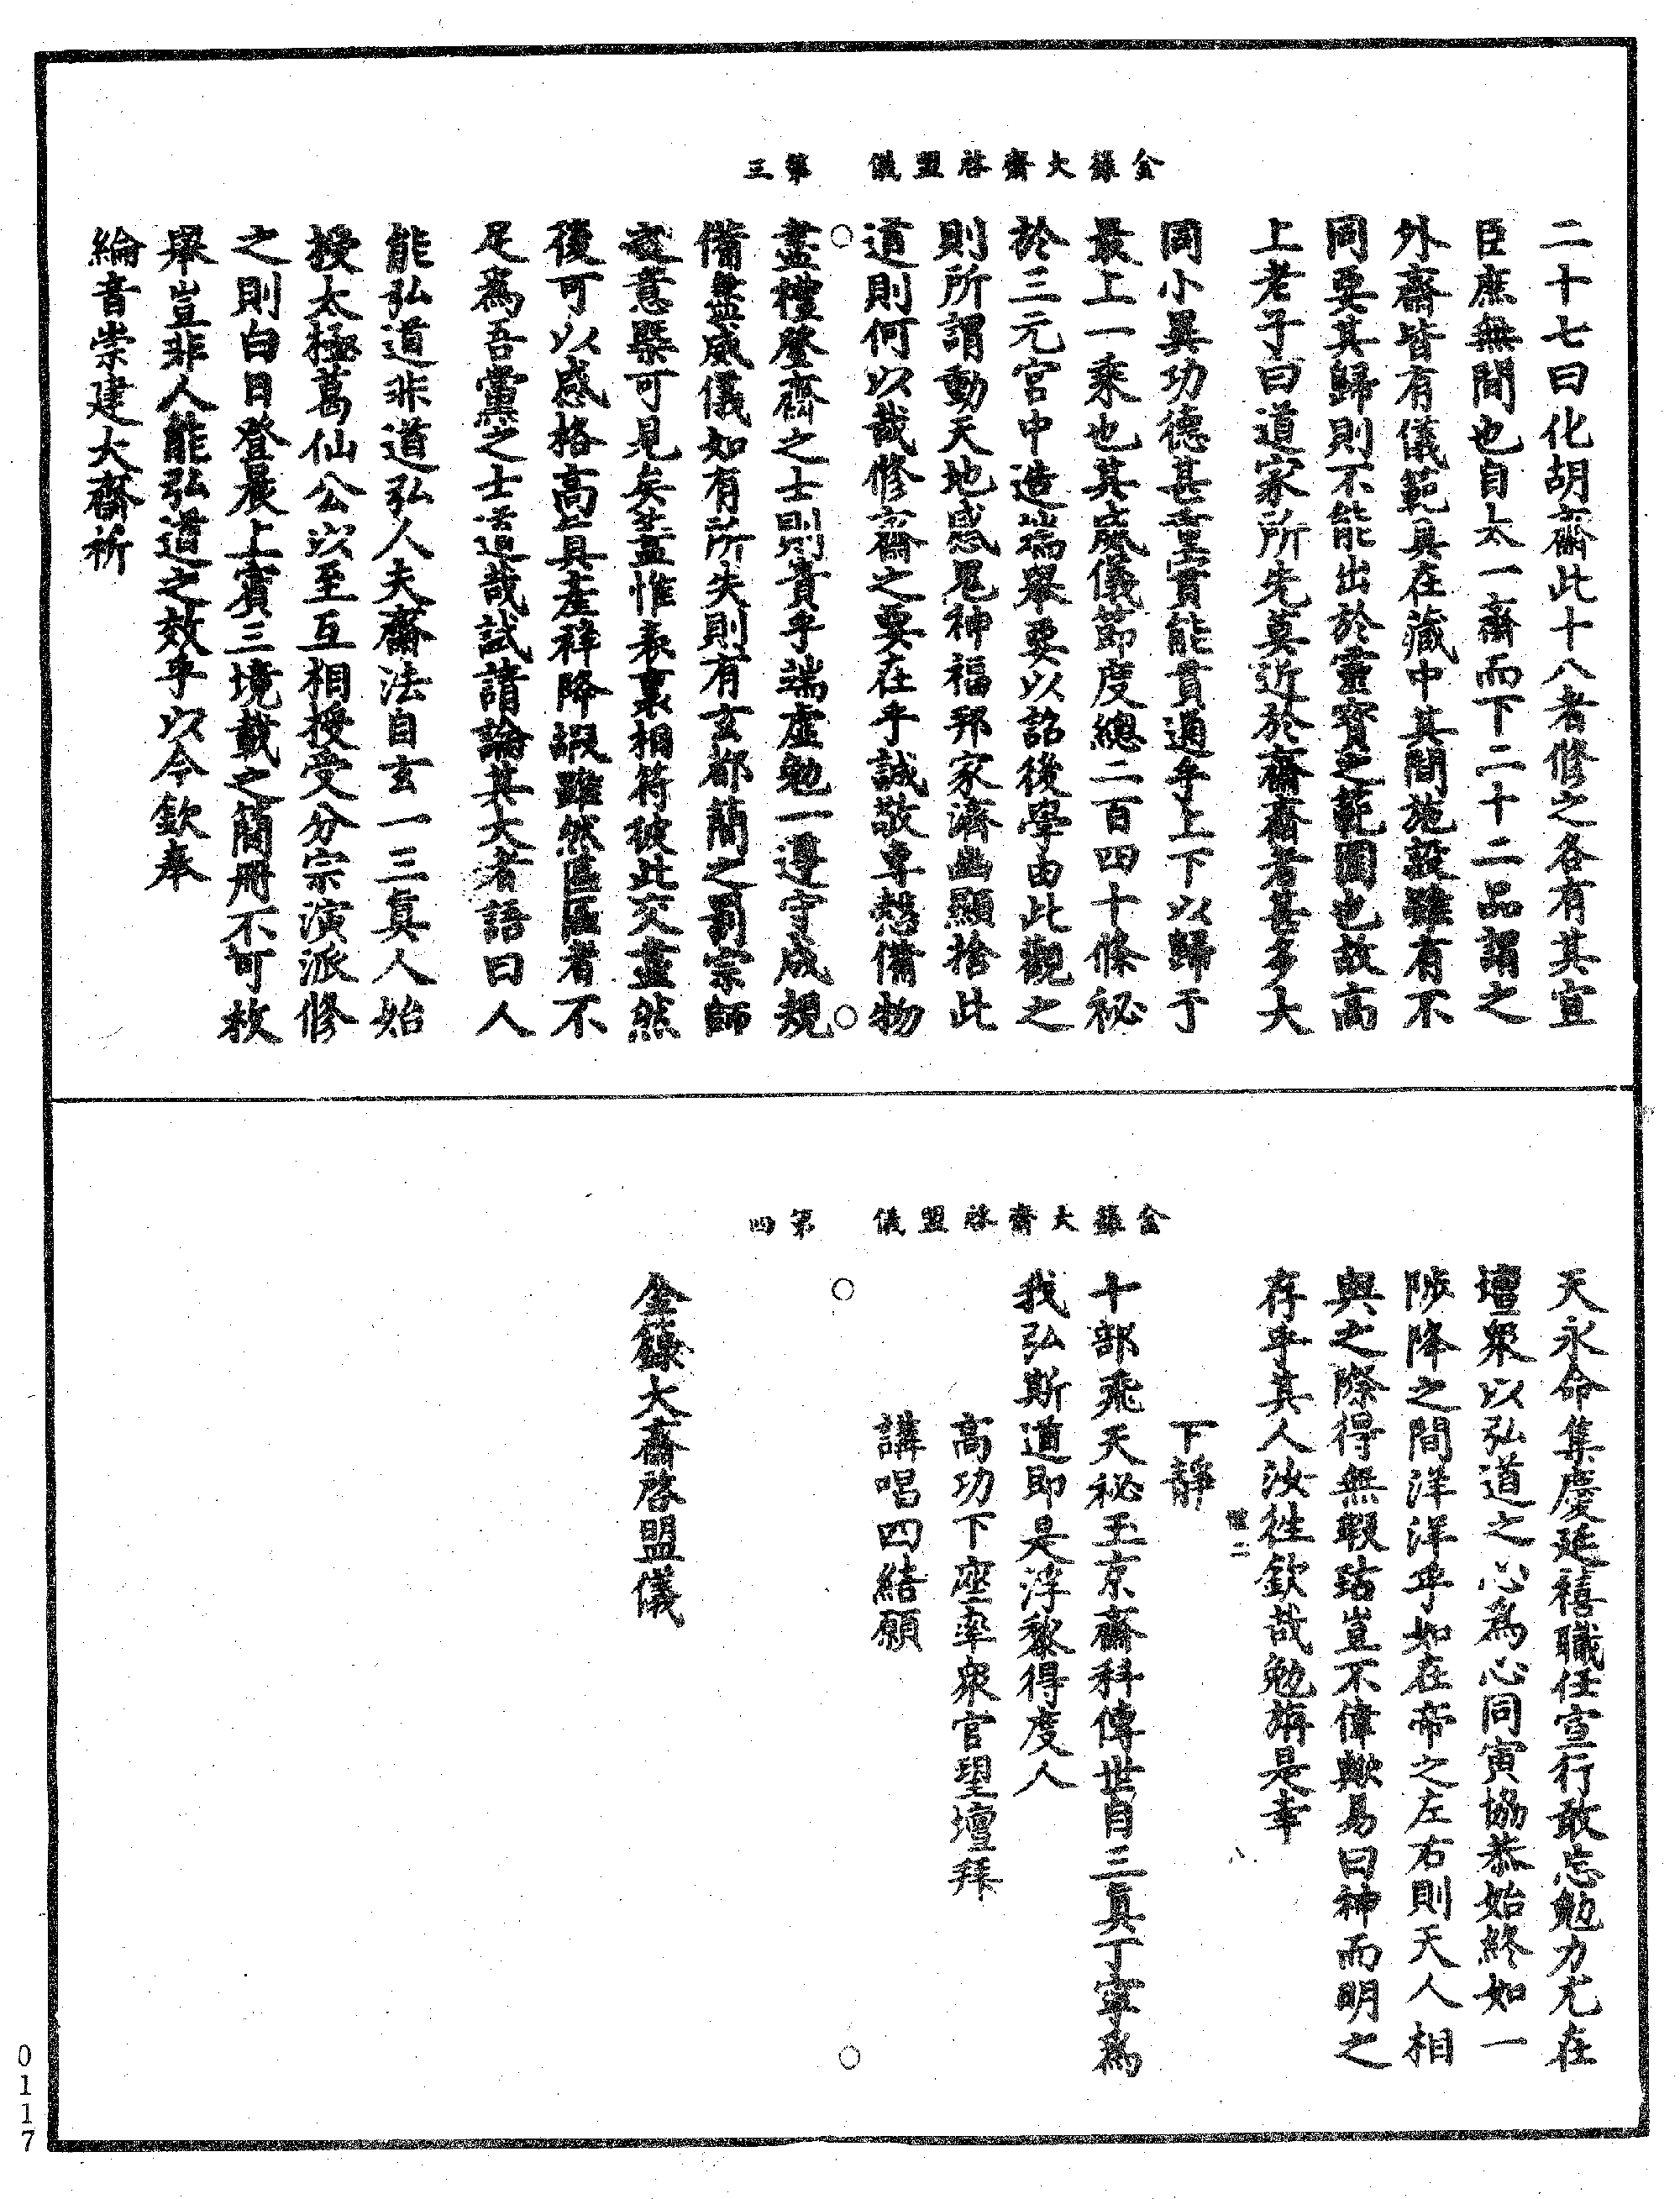 金籙大齋啓盟儀　第三
二十七曰化胡齋此十八者修之各有其宜
臣庶無間也自太一齋而下二十二品謂之
外齋皆有儀範具在藏中其間施設雖有不
同要其歸則不能出於靈寶之範圍也故高
上老子曰道家所先莫近於齋齋者甚多大
同小異功德甚重實能貫通乎上下以歸于
最上一乘也其威儀節度總二百四十條祕
於三元宮中造端舉要以詔後學由此觀之
則所謂動天地感鬼神福邦家濟幽顯捨此
道則何以哉修齋之要在乎誠敬專慤備物
盡禮登齋之士則貴乎端虛勉一遵守成規
備盡威儀如有所失則有玄都簡之罰宗師
立意槩可見矣蓋惟表裏相符彼此交盡然
後可以感格高真產祥降嘏雖然區區者不
足爲吾黨之士道哉試請論其大者語曰人
能弘道非道弘人夫齋法自玄一三真人始
授太極葛仙公以至互相授受分宗演派修
之則白日登晨上賓三境載之簡冊不可枚
舉豈非人能弘道之效乎以今欽奉
綸音崇建大齋祈
金籙大齋啓盟儀　第四
天永命集慶延禧職任宣行敢忘勉力尤在
壇衆以弘道之心爲心同寅協恭始終如一
陟降之間洋洋乎如在帝之左右則天人相
與之際得無瑕玷豈不偉歟易曰神而明之
存乎其人汝徃欽哉勉旃是幸
下靜
十部飛天祕玉京齋科傳世自三真丁寧爲
我弘斯道即是浮黎得度人
高功下座率衆官望壇拜
講唱四結願
金籙大齋啓盟儀
0117